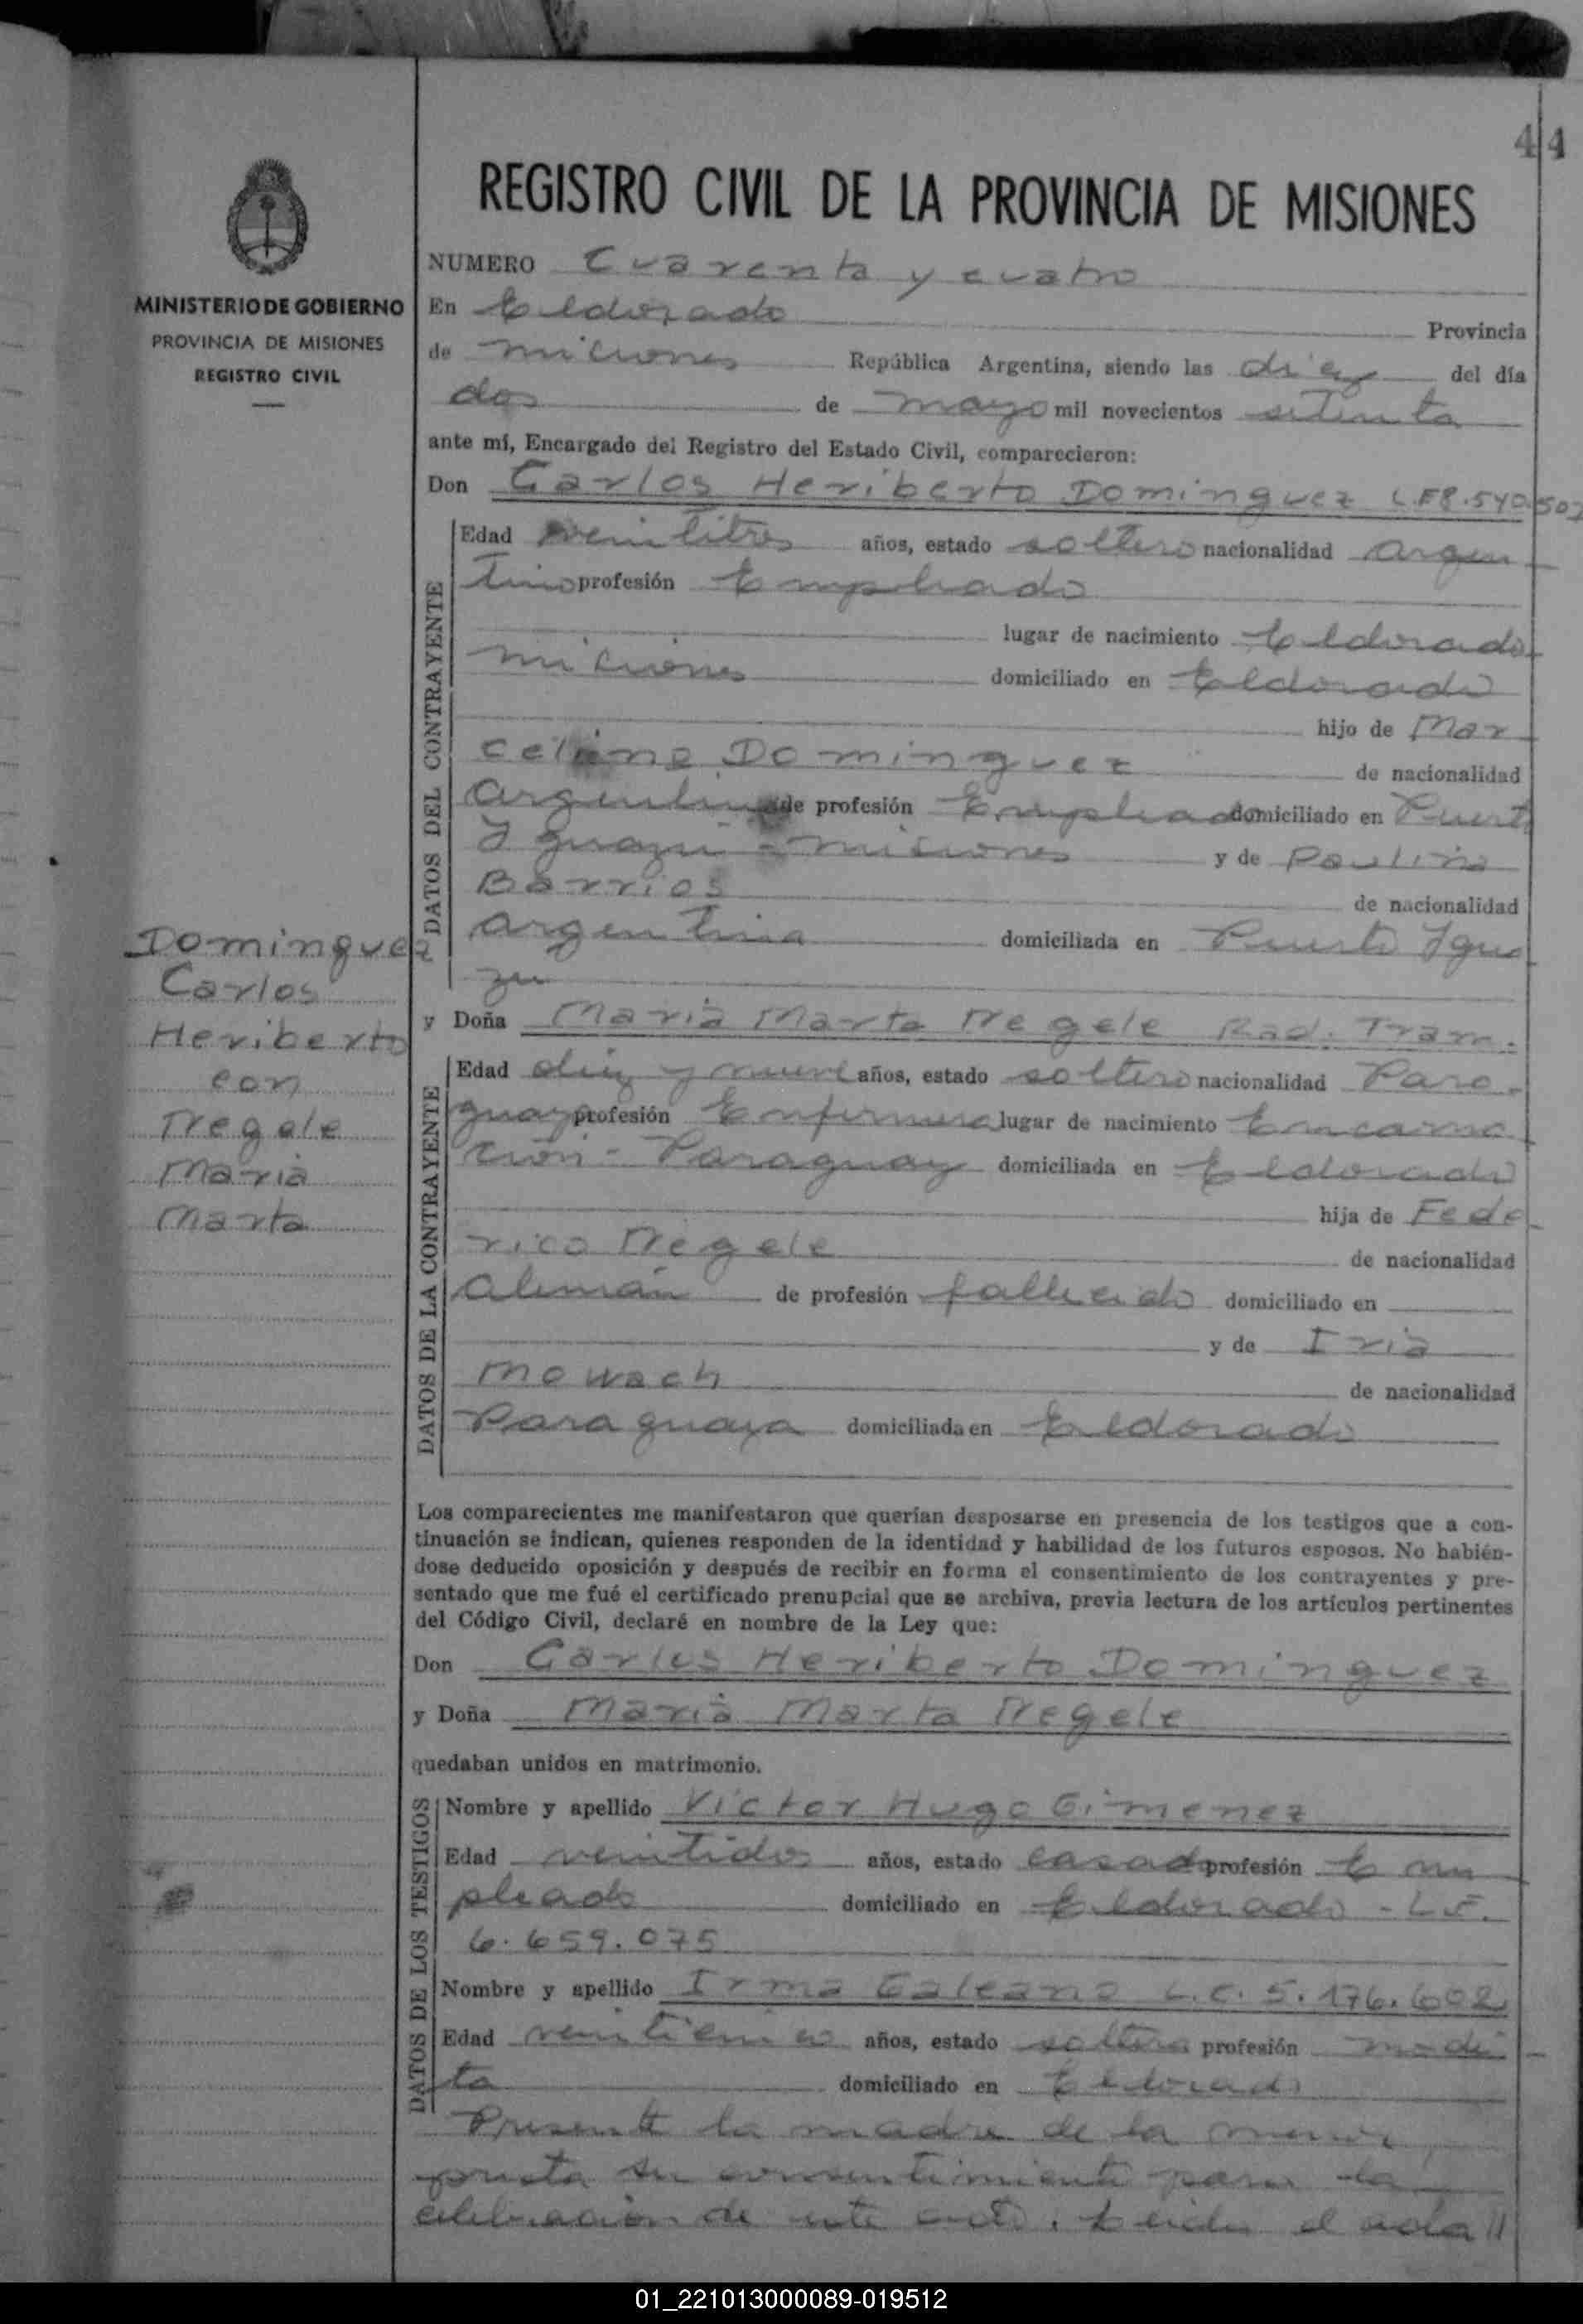 44
MINISTERIO DE GOBIERNO
PROVINCIA DE MISIONES
REGISTRO CIVIL
Dominguez
Carlos
Heriberto
con
Negele
Maria
Marta
REGISTRO CIVIL DE LA PROVINCIA DE MISIONES
NUMERO Cuarenta y cuatro
En Eldorado Provincia
de misiones República Argentina, siendo las diez del día
dos de mayo mil novecientos setenta
ante mí, Encargado del Registro del Estado Civil, comparecieron:
Don Carlos Heriberto Dominguez L.E 8.540.507
DATOS DEL CONTRAYENTE
Edad veintitres años, estado soltero nacionalidad argen
tino profesión Empleado
lugar de nacimiento Eldorado
misiones domiciliado en Eldorado
hijo de Mar
celino Dominguez de nacionalidad
argentina de profesión Empleado domiciliado en Puerto
Iguazu - misiones y de Paulina
Barrios de nacionalidad
argentina domiciliada en Puerto Igua
zu
y Doña Maria Marta Negele Rad. Tram.
DATOS DE LA CONTRAYENTE
Edad diez y nueve años, estado soltero nacionalidad Para
guaya profesión Enfermera lugar de nacimiento Encarna
cion - Paraguay domiciliada en Eldorado
hija de Fede
rico Negele de nacionalidad
Alemán de profesión fallecido domiciliado en
y de Iria
Mowach de nacionalidad
Paraguaya domiciliada en Eldorado
Los comparecientes me manifestaron que querían desposarse en presencia de los testigos que a con-
tinuación se indican, quienes responden de la identidad y habilidad de los futuros esposos. No habién-
dose deducido oposición y después de recibir en forma el consentimiento de los contrayentes y pre-
sentado que me fué el certificado prenupcial que se archiva, previa lectura de los artículos pertinentes
del Código Civil, declaré en nombre de la Ley que:
Don Carlos Heriberto Dominguez
y Doña Maria Marta Negele
quedaban unidos en matrimonio.
DATOS DE LOS TESTIGOS
Nombre y apellido Victor Hugo Gimenez
Edad veintidos años, estado casado profesión Em
pleado domiciliado en Eldorado - L.E.
6.659.075
Nombre y apellido Irma Galeano L.C. 5.176.602
Edad años, estado soltera profesión modis
ta domiciliado en Eldorado
Presente la madre de la menor,
presta su consentimiento para la
celebración de este acto. Leida el acta //
01_221013000089-019512